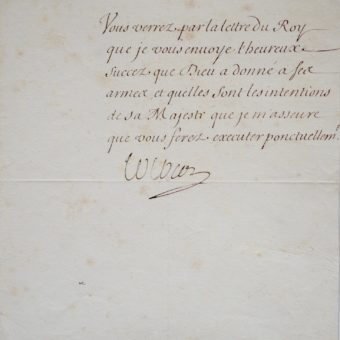 Vous verrez par la lettre du Roy
que je vous envoye l'heureux
succez que Dieu a donné a ses
armes et quelles sont les intentions
de sa Majesté que je m'asseure
que vous ferez executer ponctuellemt